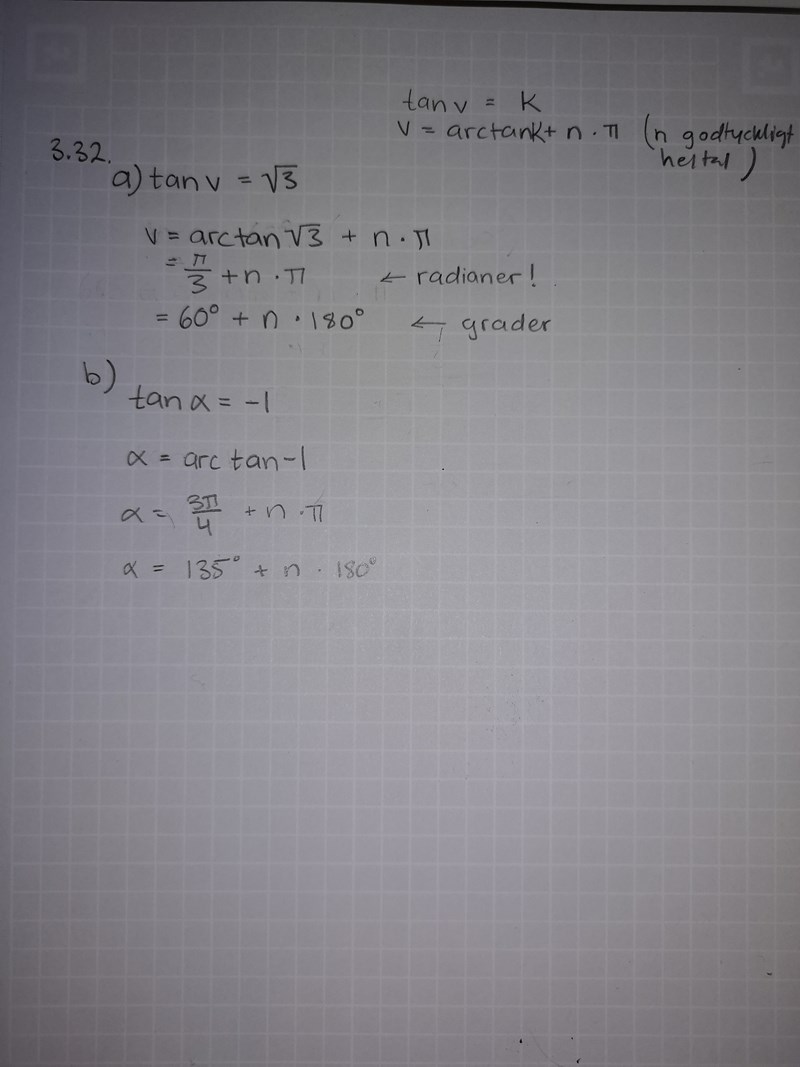 tan v = K
v = arctank + n · π (n godtyckligt
heltal)
3.32.
a) tan v = √3
v = arctan √3 + n · π
= π/3 + n · π ← radianer!
= 60° + n · 180° ← grader
b)
tan α = -1
α = arc tan -1
α = 3π/4 + n · π
α = 135° + n · 180°